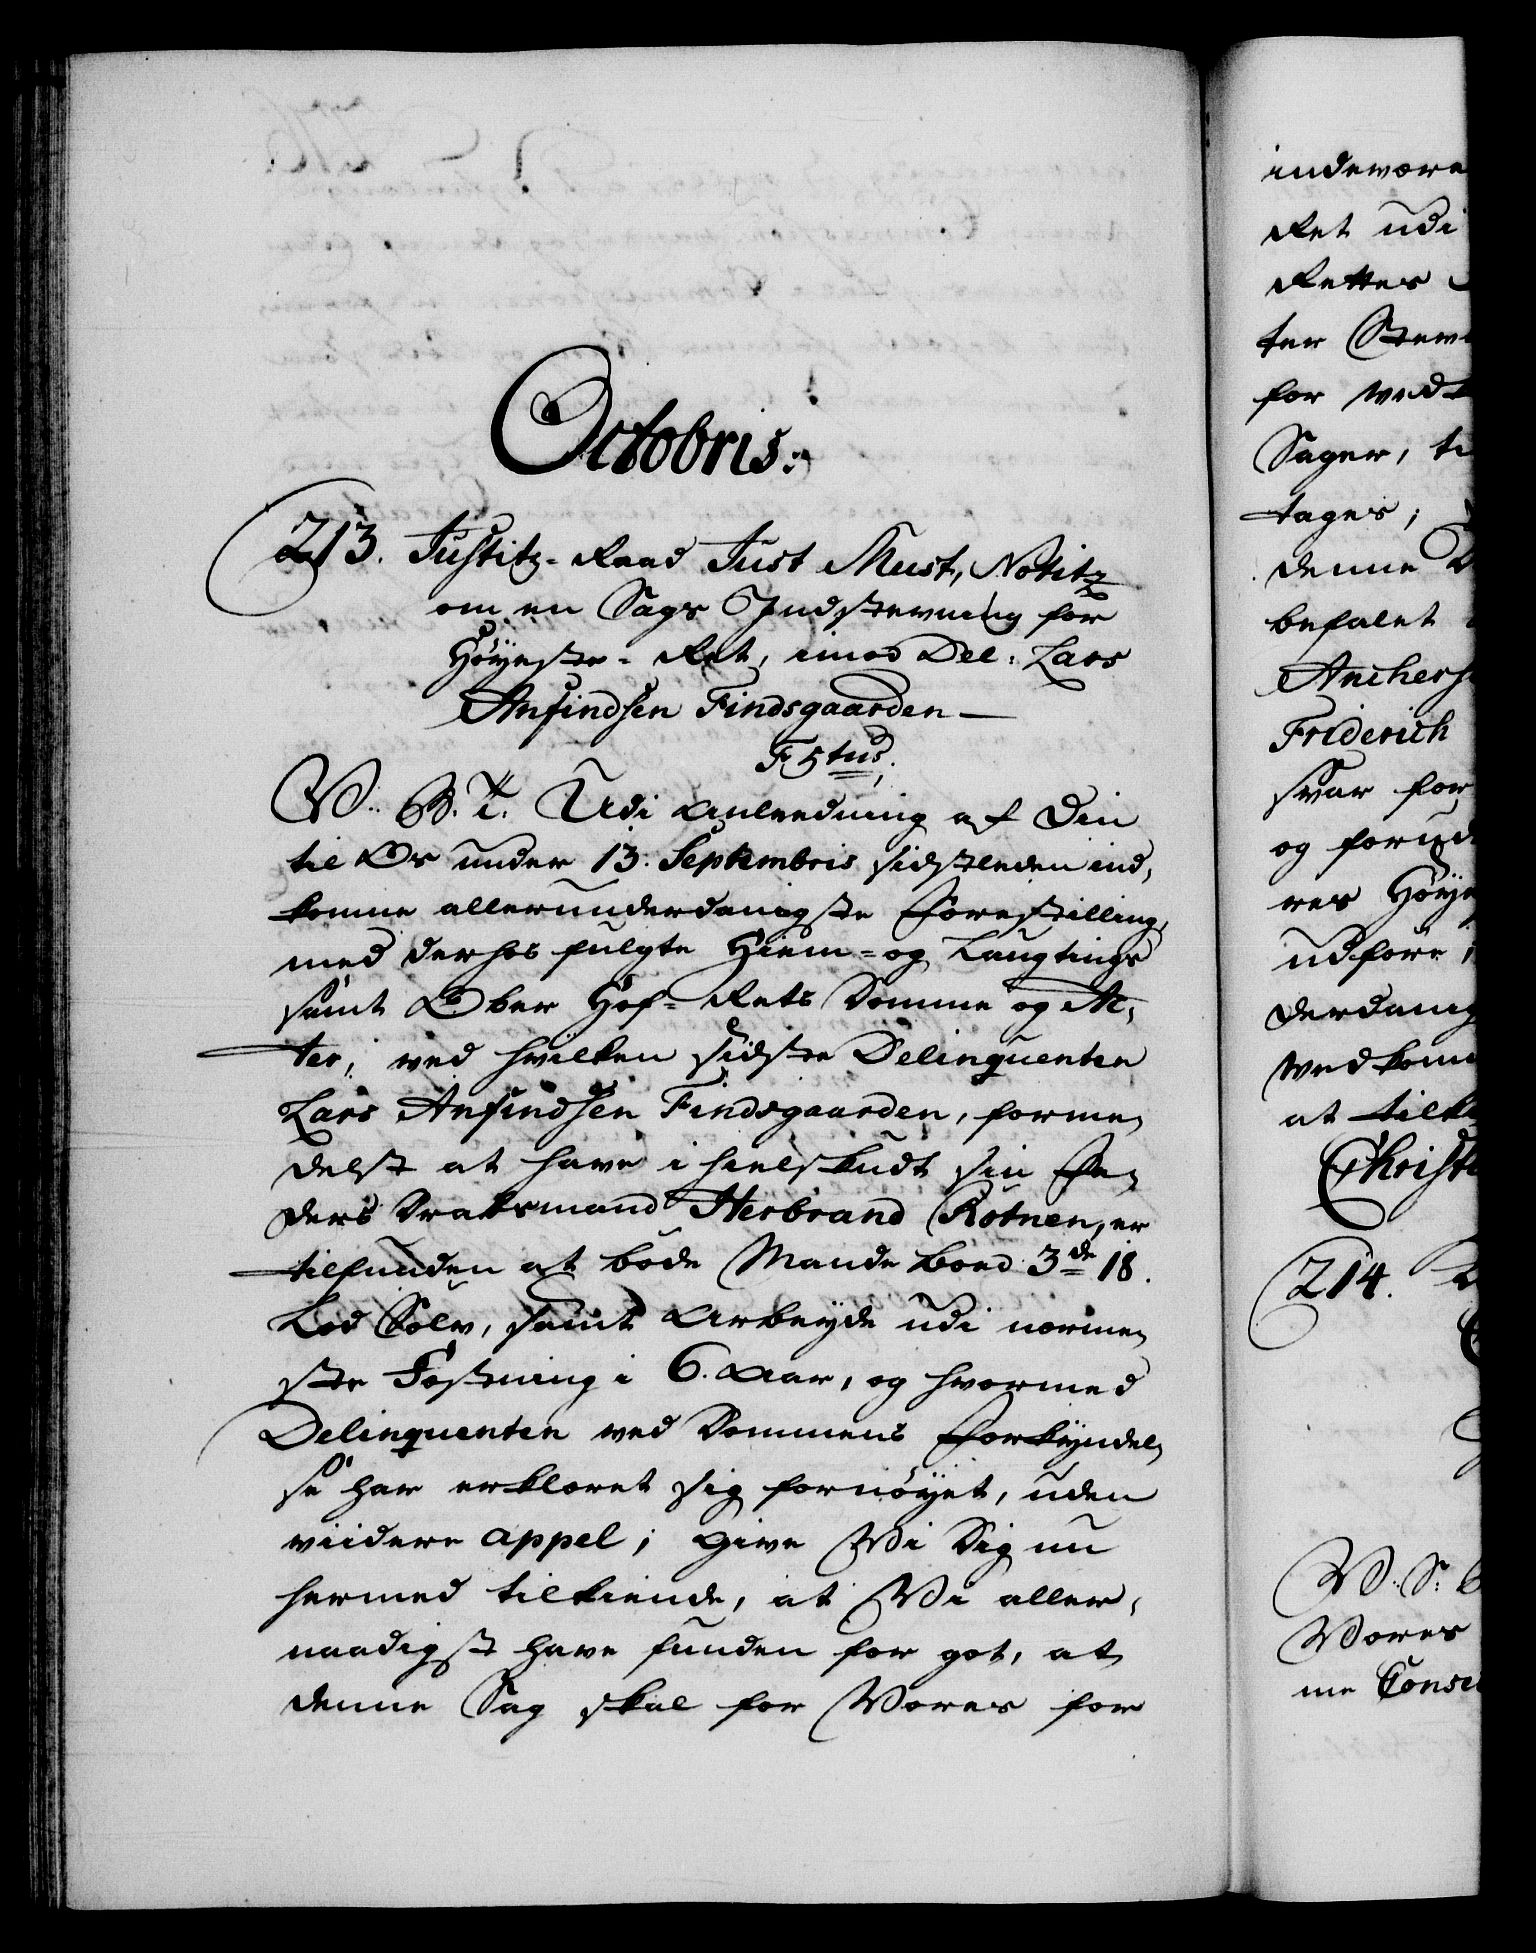 Octobris:
213. Justitz-Raad Just Must, Notitz
om en Sags Indstevning for
Höyeste-Ret, imod Del: Lars
Anfindsen Findsgaarden —
F 5tus.
V. G. T. Udi Anleedning af Din
til Os under 13. Septembris sidstleden ind,
komne allerunderdanigste Forestilling,
med derhos fulgte Hiem- og Laugtings
samt Ober Hof-Rets Domme og Ac,
ter, ved hvilken sidste Delinquenten
Lars Anfindsen Findsgaarden, forme,
delst at have ihielskudt sin Fa,
ders Drabsmand Herbrand Rotnen, er
tilfunden at böde Mande Boed 3de 18.
Lod Sölv, samt Arbeyde udi nærme,
ste Fæstning i 6. Aar, og hvormed
Delinquenten ved Dommens Forkyndel,
se har erklæret sig fornöyet, uden
viidere appel; Give Vi Dig nu
hermed tilkiende, at Vi aller,
naadigst have funden for got, at
denne Sag skal for Vores for
indevære
Ret udi
Rettes
ter Stev
for vedt
Sager, ti
tages;
denne
befalet
Anchers
Friderich
svar for
og forud
res Höye
udföre,
derdanig
vedkom
at tilk
Christi
214.
V. S:
Vores
me Conse